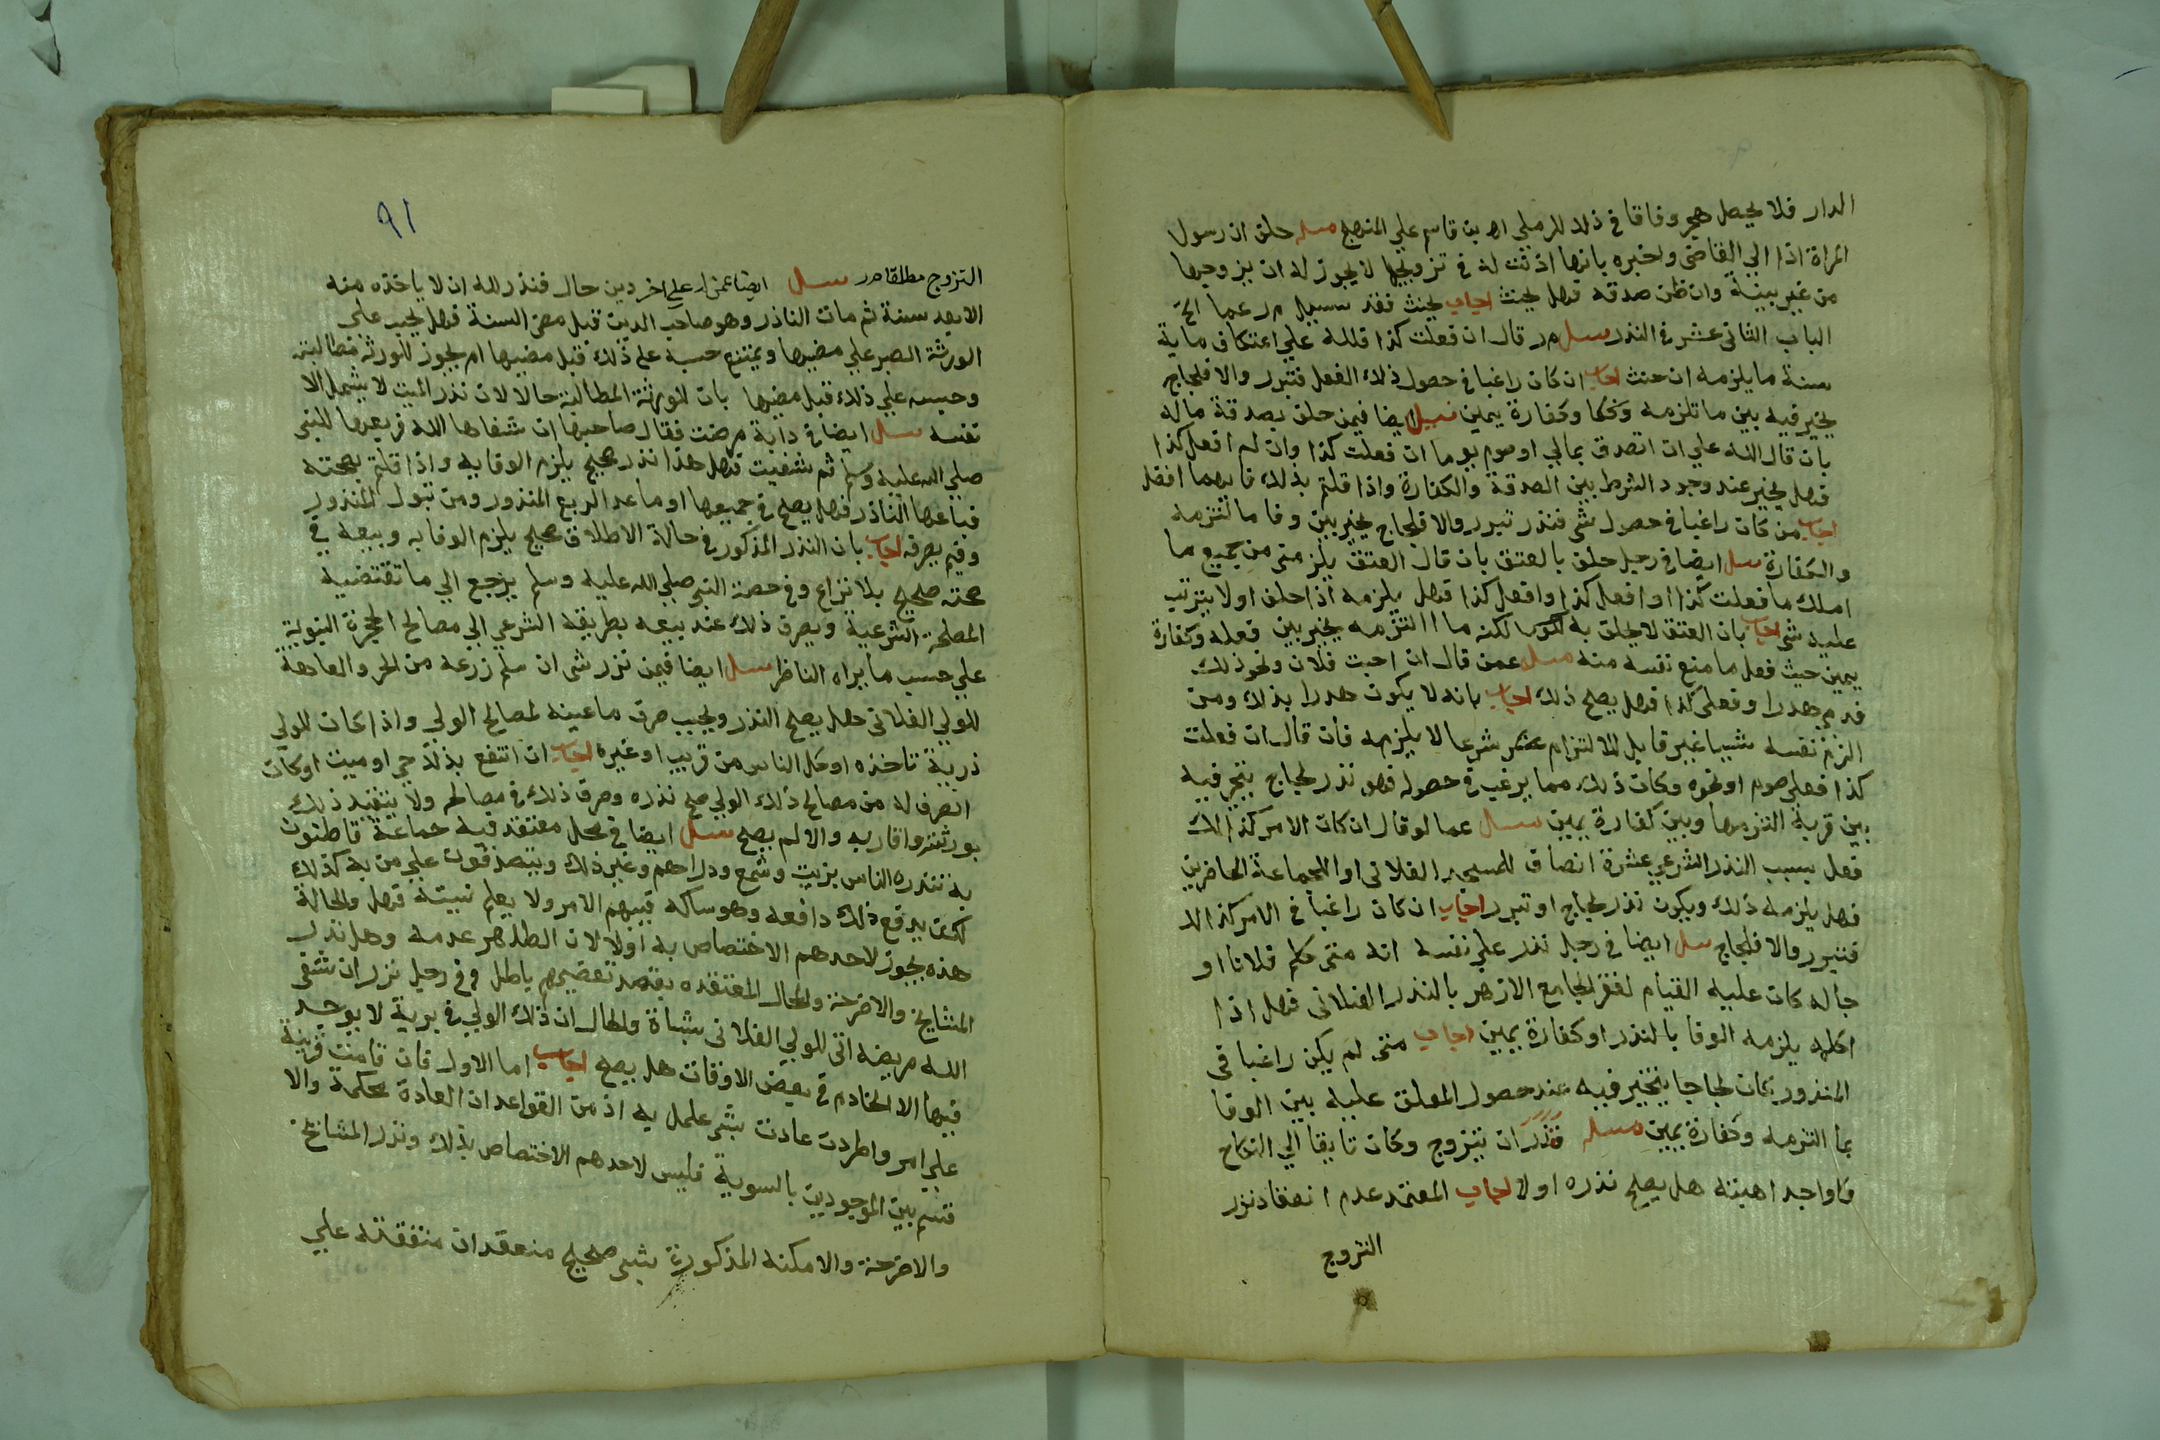 الدار فلا يحصل هجر وفاقا في ذلك للرملي اه بن قاسم علي المنهج مسله حلف ان رسول
المراة اذا الي القاضي واخبره بانها اذنت له في تزويجها لا يجوز له ان يزوجها
من غير بينة وان ظن صدقه فهل يحنث اجاب يحنث فقد سيل م ر عما الخ
الباب الثاني عشر في النذر سل م ر قال ان فعلت كذا فلله علي اعتكاف ماية
سنة ما يلزمه ان حنث اجاب ان كان راغبا في حصول ذلك الفعل فتبرر والا فلجاج
يخير فيه بين ما تلزمه وكفارة يمين سيل ايضا فيمن حلف بصدقة ماله
بان قال لله علي ان اتصدق بمالي او صوم يوما ان فعلت كذا وان لم افعل كذا
فهل يخير عند وجود الشرط بين الصدقة والكفارة واذا قلتم بذلك فايهما افضل
اجاب من كان راغبا في حصول شي فنذر تبرر والا فلجاج يخير بين وفا ما التزمه
والكفارة سل ايضا في رجل حلف بالعتق بان قال العتق يلزمني من جميع ما
املك ما فعلت كذا او افعل كذا وافعل كذا فهل يلزمه اذا حلف او لا يترتب
عليه شي اجاب بان العتق لا يحلف به لكنه ما االتزمه يخير بين فعله وكفارة
يمين حيث فعل ما منع نفسه منه مسله عمن قال ان احبت فلان ونحو ذلك
فدمي هدرا وفعلي كذا فهل يصح ذلك اجاب بانه لا يكون هدرا بذلك ومن
الزم نفسه شييا غير قابل للالتزام شرعا لا يلزمه فان قال ان فعلت
كذا فعلي صوم او نحوه وكان ذلك مما يرغب في حصوله فهو نذر لجاج يتخير فيه
بين قربة التزمها وبين كفارة يمين سل عما لو قال ان كان الامر كذا لك
فعل بسبب النذر الشرعي عشرة انصاف للمسجد الفلاني او للجماعة الحاضرين
فهل يلزمه ذلك ويكون نذر لجاج او تبرر اجاب ان كان راغبا في الامر كذا لك
فتبرر والا فلجاج سل ايضا في رجل نذر علي نفسه انه متي كلم فلانا او
جاله كان عليه القيام لفقرا الجامع الازهر بالنذر الفلاني فهل اذا
اكلمه يلزمه الوفا بالنذر او كفارة يمين اجاب متي لم يكن راغبا في
المنذور كان لجاجا يتخير فيه عند حصول المعلق عليه بين الوفا
بما التزمه وكفارة يمين مسله فنذر ان يتزوج وكان تايقا الي النكاح
وواجد اهبته هل يصح نذره او لا اجاب المعتمد عدم انعقاد نذر
التزوج
٩١
التزوج مطلقا م ر سل ايضا عمن له علي اخر دين حال فنذر لله ان لا ياخذه منه
الا بعد سنة ثم مات الناذر وهو صاحب الدين قبل مضي السنة فهل يجب علي
الورثة الصبر علي مضيها ويمتنع حبسه علي ذلك قبل مضيها ام يجوز للورثة مطالبته
وحبسه علي ذلك قبل مضيها بان للورثة المطالبة حالا لان نذر الميت لا يشمل الا
نفسه سل ايضا في دابة مرضت فقال صاحبها ان شفاها الله فربعها للنبي
صلي الله عليه وسلم ثم شفيت فهل هذا نذر صحيح يلزم الوفا به واذا قلتم بصحته
فباعها الناذر فهل يصح في جميعها او ما عدا الربع المنذور ومن تبول المنذور
وفيم يصرفه اجاب بان النذر المذكور في حالة الاطلاق صحيح يلزم الوفا به وبيعه في
صحته صحيح بلا نزاع وفي حصة النبي صلي الله عليه وسلم يرجع الي ما تقتضيه
المصلحة الشرعية ويصرف ذلك عند بيعه بطريقه الشرعي الي مصالح الحجرة النبوية
علي حسب ما يراه الناظر سل ايضا فيمن نذر شي ان سلم زرعه من الحر والعاهة
للولي الفلاني هل يصح النذر ويجب صرف ما عينه لمصالح الولي واذا كان للولي
ذرية تاخذه او كل الناس من قريب او غيره اجاب ان انتفع بذلك حي او ميت او كان
الصرف له من مصالح ذلك الولي صح نذره وصرف ذلك في مصالحه ولا يتقيد ذلك
بورثته واقاربه والا لم يصح سل ايضا في محل معتقد فيه جماعة قاطنون
به تنذره الناس بزيت وشمع ودراهم وغير ذلك ويتصدقون علي من به كذلك
لكن يدفع ذلك دافعه وهو ساكت فيبهم الامر ولا يعلم نيته فهل والحالة
هذه يجوز لاحدهم الاختصاص به او لا لان الظاهر عدمه وهل نذر
المشايخ والاضرحة والمحال المعتقده بقصد تعظيمهم باطل وفي رجل نذر ان شفي
الله مريضه اتي للولي الفلاني بشاة والحال ان ذلك الولي في برية لا يوجد
فيها الا الخادم في بعض الاوقات هل يصح اجاب اما الاول فان قامت قرينة
علي امر واطردت عادت بشي عمل به اذ من القواعد ان العادة محكمة والا
قسم بين الموجودين بالسوية فليس لاحدهم الاختصاص بذلك ونذر المشايخ
والاضرحة والامكنه المذكورة بشي صحيح منعقد ان متفقته علي